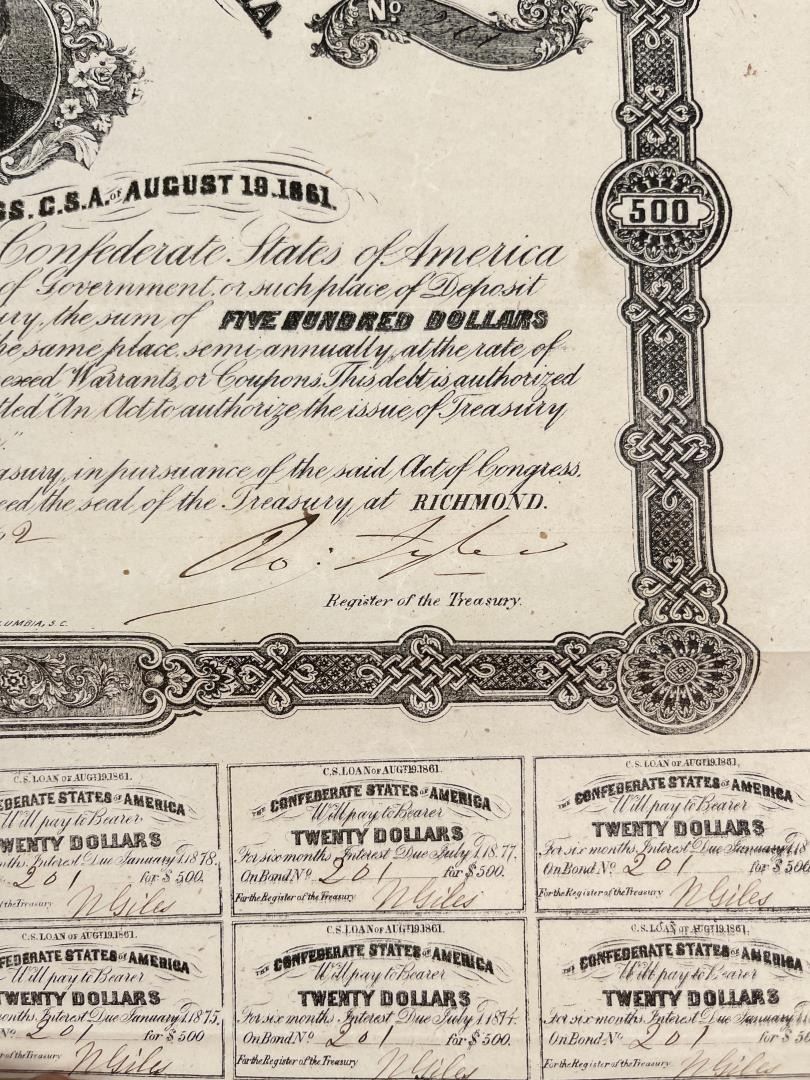 A
No 201
SS. C.S.A. of AUGUST 19.1861.
Confederate States of America
of Government, or such place of Deposit
ury, the sum of FIVE HUNDRED DOLLARS
he same place, semi-annually, at the rate of
exed Warrants, or Coupons. This debt is authorized
tled "An Act to authorize the issue of Treasury
"
asury, in pursuance of the said Act of Congress,
eed the seal of the Treasury, at RICHMOND.
2
Ro: Tyler
Register of the Treasury.
LUMBIA, S.C.
500
C.S. LOAN OF AUGT 19.1861.
DERATE STATES OF AMERICA
Will pay to Bearer
WENTY DOLLARS
ths Interest Due January 1.1878.
201 for $500.
of the Treasury N Giles
C.S. LOAN OF AUGT 19.1861.
THE CONFEDERATE STATES OF AMERICA
Will pay to Bearer
TWENTY DOLLARS
For six months Interest Due July 1.1877.
On Bond No 201 for $500.
For the Register of the Treasury N Giles
C.S. LOAN OF AUGT 19.1861.
THE CONFEDERATE STATES OF AMERICA
Will pay to Bearer
TWENTY DOLLARS
For six months Interest Due January 1.18
On Bond No 201 for $500
For the Register of the Treasury N Giles
C.S. LOAN OF AUGT 19.1861.
FEDERATE STATES OF AMERICA
Will pay to Bearer
TWENTY DOLLARS
months Interest Due January 1.1875.
No 201 for $500
of the Treasury N Giles
C.S. LOAN OF AUGT 19.1861.
THE CONFEDERATE STATES OF AMERICA
Will pay to Bearer
TWENTY DOLLARS
For six months Interest Due July 1.1874.
On Bond No 201 for $500.
For the Register of the Treasury N Giles
C.S. LOAN OF AUGT 19.1861.
THE CONFEDERATE STATES OF AMERICA
Will pay to Bearer
TWENTY DOLLARS
For six months Interest Due January
On Bond No 201 for $50
For the Register of the Treasury N Giles